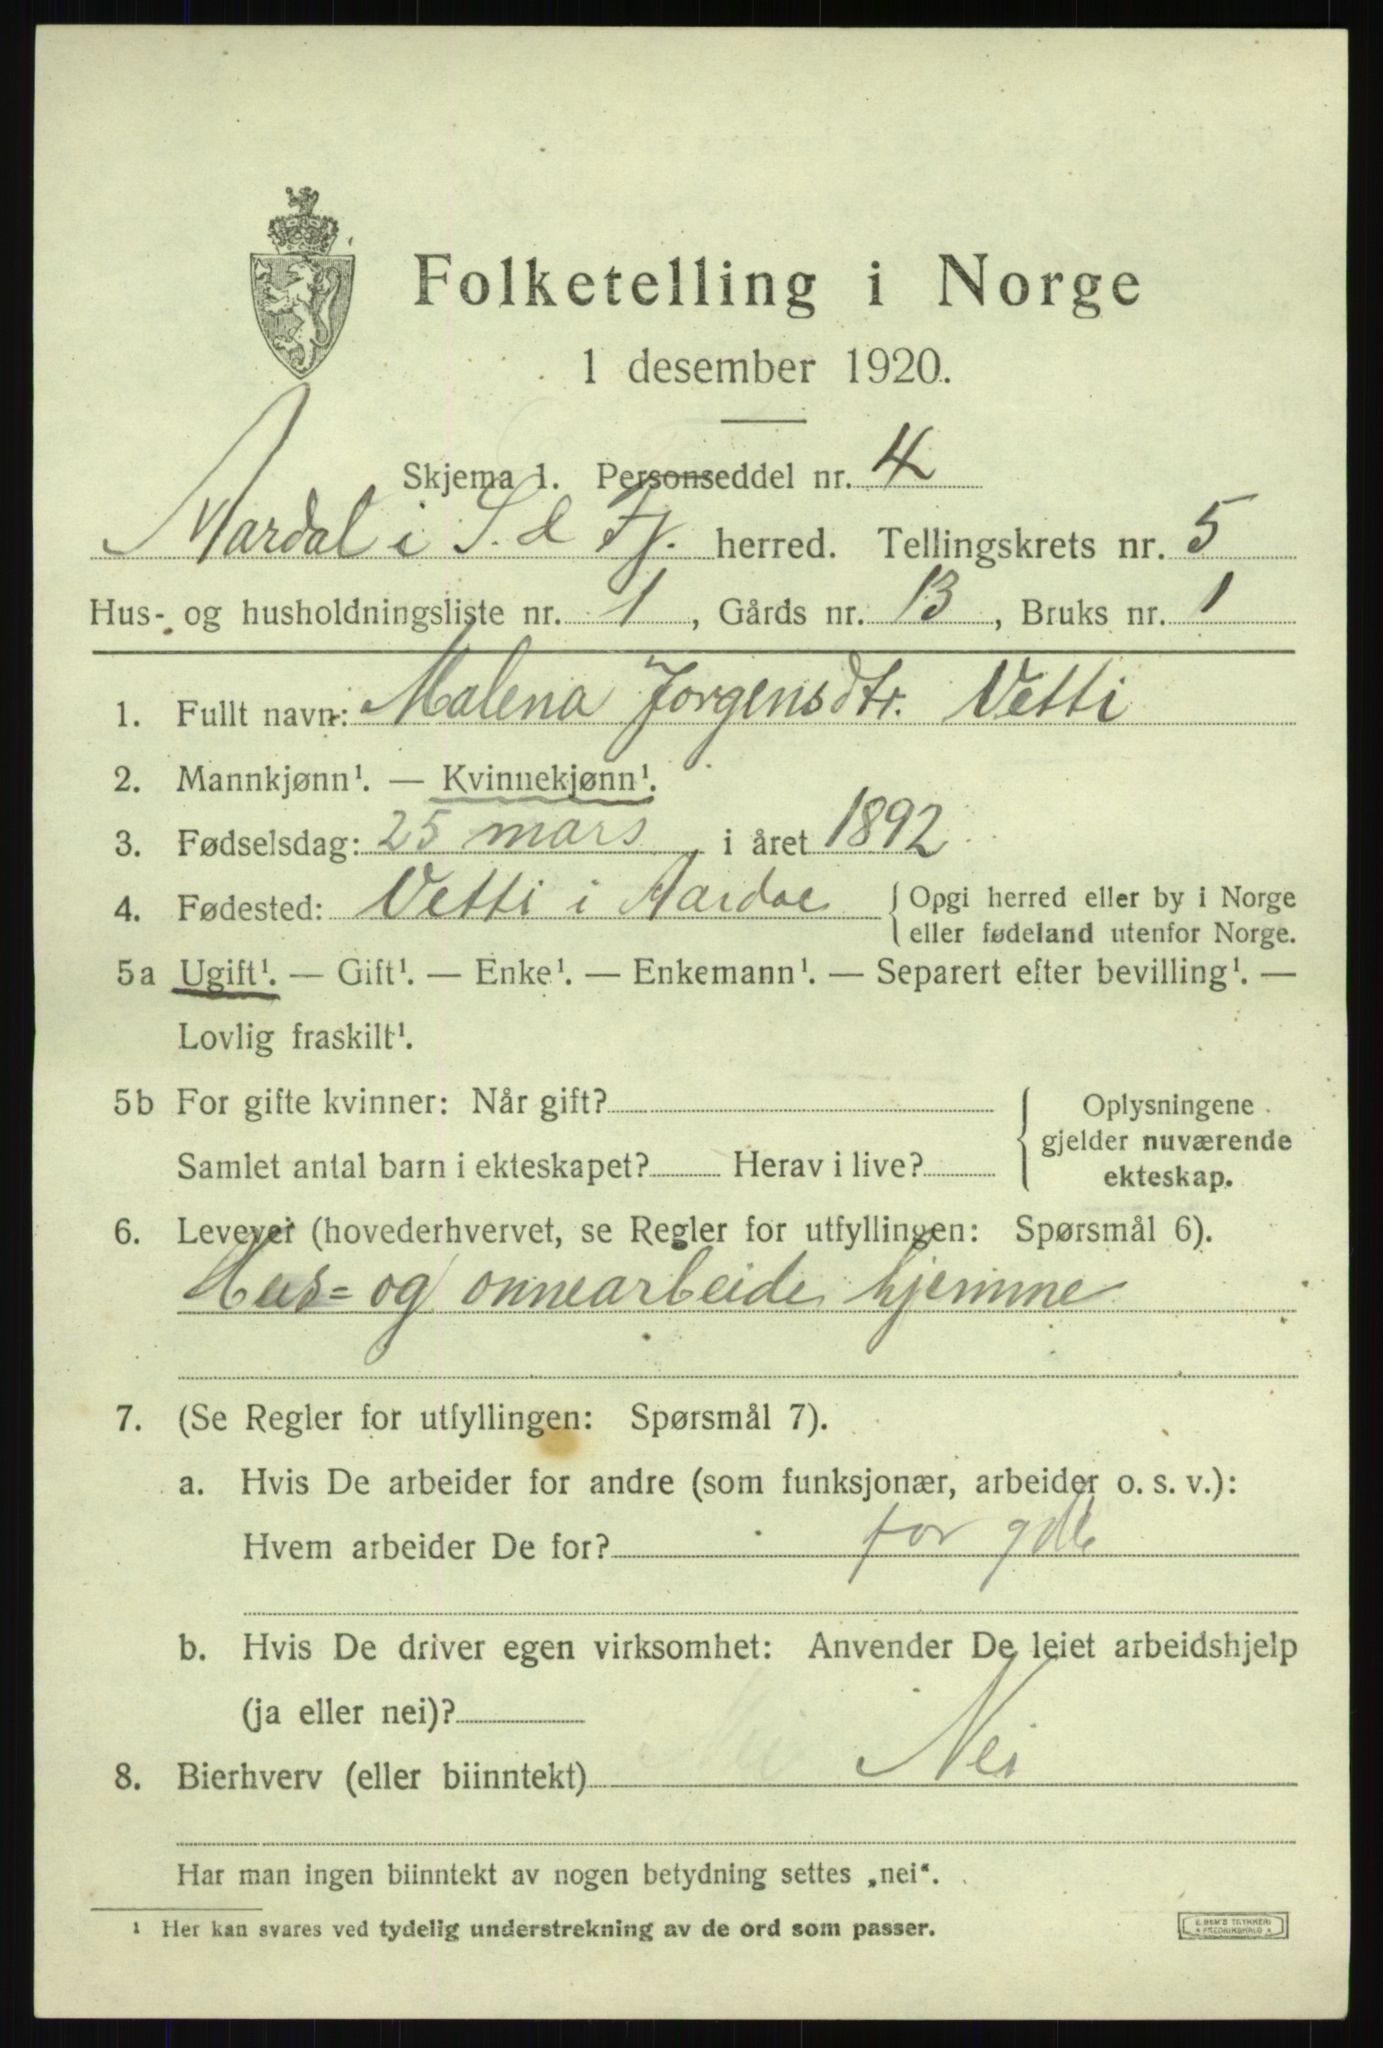 Folketelling i Norge
1 desember 1920.
Skjema 1. Personseddel nr. 4
Aardal i S. & Fj. herred. Tellingskrets nr. 5
Hus- og husholdningsliste nr. 1, Gårds nr. 13, Bruks nr. 1
1. Fullt navn: Malena Jørgensdtr. Vetti
2. Mannkjønn¹. — Kvinnekjønn¹.
3. Fødselsdag: 25 mars i året 1892
4. Fødested: Vetti i Aardal { Opgi herred eller by i Norge
eller fødeland utenfor Norge.
5a Ugift¹. — Gift¹. — Enke¹. — Enkemann¹. — Separert efter bevilling¹. —
Lovlig fraskilt¹.
5b For gifte kvinner: Når gift?
Samlet antal barn i ekteskapet? Herav i live?
Oplysningene
gjelder nuværende
ekteskap.
6. Levevei (hovederhvervet, se Regler for utfyllingen: Spørsmål 6).
Hus- og onnearbeide hjemme
7. (Se Regler for utfyllingen: Spørsmål 7).
a. Hvis De arbeider for andre (som funksjonær, arbeider o. s. v.):
Hvem arbeider De for? for
b. Hvis De driver egen virksomhet: Anvender De leiet arbeidshjelp
(ja eller nei)?
8. Bierhverv (eller biinntekt) Nei
Har man ingen biinntekt av nogen betydning settes „nei“.
¹ Her kan svares ved tydelig understrekning av de ord som passer.